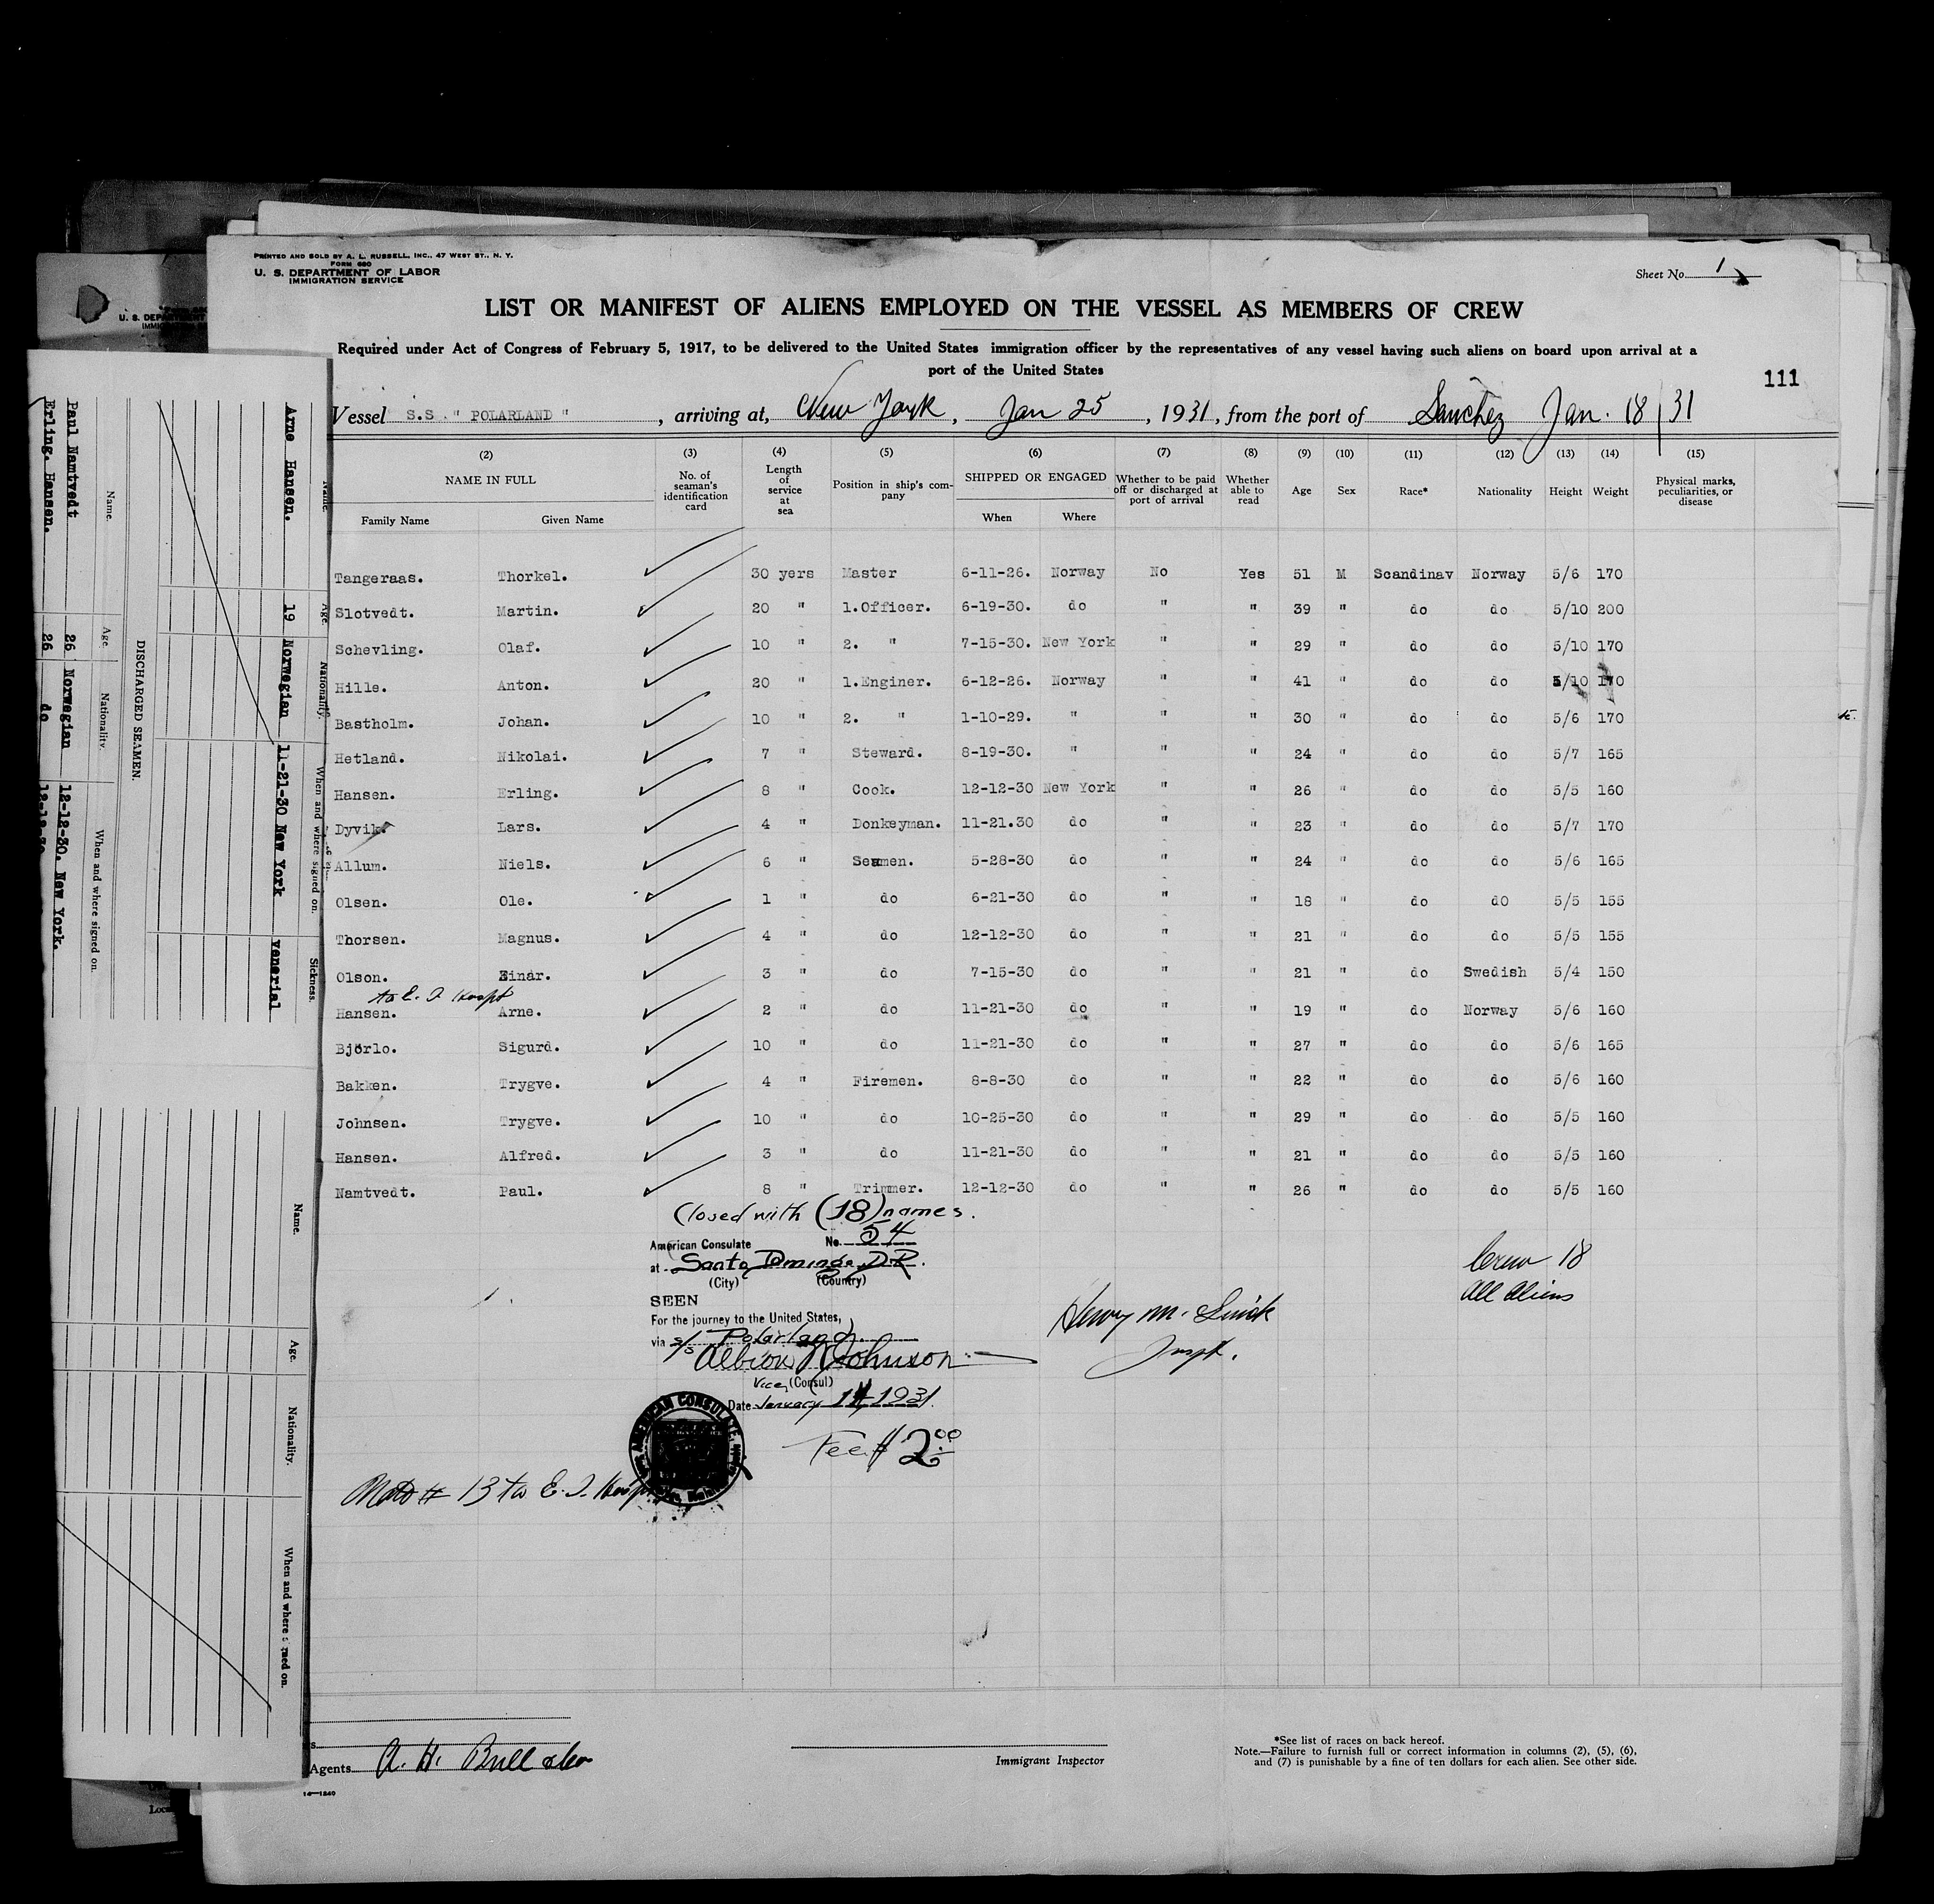 PRINTED AND SOLD BY A. L. RUSSELL, INC., 47 WEST ST., N. Y.
FORM 680
U. S. DEPARTMENT OF LABOR
IMMIGRATION SERVICE
Sheet No. 1
LIST OR MANIFEST OF ALIENS EMPLOYED ON THE VESSEL AS MEMBERS OF CREW
Required under Act of Congress of February 5, 1917, to be delivered to the United States immigration officer by the representatives of any vessel having such aliens on board upon arrival at a
port of the United States
111
Vessel S.S. " POLARLAND ", arriving at, New York, Jan 25, 1931, from the port of Sanchez Jan. 18/31
(2) (3) (4) (5) (6) (7) (8) (9) (10) (11) (12) (13) (14) (15)
NAME IN FULL No. of seaman's identification card Length of service at sea Position in ship's company SHIPPED OR ENGAGED Whether to be paid off or discharged at port of arrival Whether able to read Age Sex Race* Nationality Height Weight Physical marks, peculiarities, or disease
Family Name Given Name When Where
Tangeraas. Thorkel. 30 yers Master 6-11-26. Norway No Yes 51 M Scandinav Norway 5/6 170
Slotvedt. Martin. 20 " 1.Officer. 6-19-30. do " " 39 " do do 5/10 200
Schevling. Olaf. 10 " 2. " 7-15-30. New York " " 29 " do do 5/10 170
Hille. Anton. 20 " 1.Enginer. 6-12-26. Norway " " 41 " do do 5/10 170
Bastholm. Johan. 10 " 2. " 1-10-29. " " " 30 " do do 5/6 170
Hetland. Nikolai. 7 " Steward. 8-19-30. " " " 24 " do do 5/7 165
Hansen. Erling. 8 " Cook. 12-12-30 New York " " 26 " do do 5/5 160
Dyvik. Lars. 4 " Donkeyman. 11-21.30 do " " 23 " do do 5/7 170
Allum. Niels. 6 " Seamen. 5-28-30 do " " 24 " do do 5/6 165
Olsen. Ole. 1 " do 6-21-30 do " " 18 " do do 5/5 155
Thorsen. Magnus. 4 " do 12-12-30 do " " 21 " do do 5/5 155
Olson. Einar. 3 " do 7-15-30 do " " 21 " do Swedish 5/4 150
to E. I Hospt
Hansen. Arne. 2 " do 11-21-30 do " " 19 " do Norway 5/6 160
Björlo. Sigurd. 10 " do 11-21-30 do " " 27 " do do 5/6 165
Bakken. Trygve. 4 " Firemen. 8-8-30 do " " 22 " do do 5/6 160
Johnsen. Trygve. 10 " do 10-25-30 do " " 29 " do do 5/5 160
Hansen. Alfred. 3 " do 11-21-30 do " " 21 " do do 5/5 160
Namtvedt. Paul. 8 " Trimmer. 12-12-30 do " " 26 " do do 5/5 160
Closed with (18) names.
American Consulate No. 54
at Santo Domingo, D.R.
(City) (Country)
SEEN
For the journey to the United States,
via s/s Polarland.
Albion W Johnson
Vice (Consul)
Date January 14, 1931.
AMERICAN CONSULATE
Fee $ 2.00
Crew 18
All Aliens
Henry M.
Inspt.
# 13 to E. I. Hospt
Agents A. H. Bull & Co
Immigrant Inspector
*See list of races on back hereof.
Note.—Failure to furnish full or correct information in columns (2), (5), (6),
and (7) is punishable by a fine of ten dollars for each alien. See other side.
14—1240
Name. Age. Nationality. When and where signed on. Sickness.
Arne Hansen. 19 Norwegian 11-21-30 New York venerial
DISCHARGED SEAMEN.
Name. Age. Nationality. When and where signed on.
Paul Namtvedt 26 Norwegian 12-12-30. New York.
Erling. Hansen. 26 do 12-12-30
Name. Age. Nationality. When and where signed on.